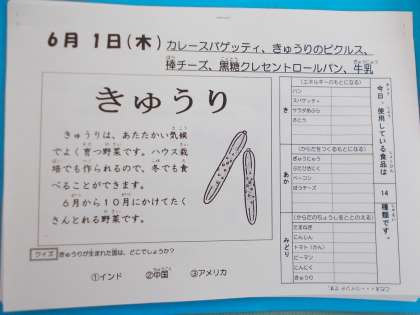 6月 1日(木) カレースパゲッティ、きゅうりのピクルス、
棒チーズ、黒糖クレセントロールパン、牛乳
きゅうり
きゅうりは、あたたかい気候
でよく育つ野菜です。ハウス栽
培でも作られるので、冬でも食
べることができます。
6月から10月にかけてたく
さんとれる野菜です。
クイズ きゅうりが生まれた国は、どこでしょうか?
①インド ②中国 ③アメリカ
今日、使用している食品は
14
種類です。
き
(エネルギーのもとになる)
パン
スパゲッティ
サラダあぶら
さとう
あか
(からだをつくるもとになる)
ぎゅうにゅう
ぶたひきにく
ベーコン
ぼうチーズ
みどり
(からだのちょうしをととのえる)
たまねぎ
にんじん
トマト(かん)
ピーマン
にんにく
きゅうり